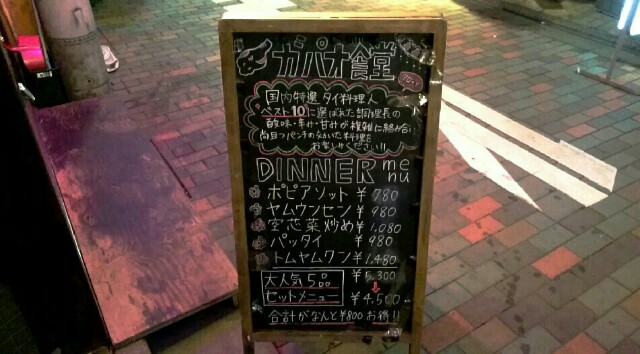 ガパオ食堂
国内特選 タイ料理人
ベスト10に選ばれた調理長の
酸味・辛み・甘みが複雑に絡み合い
尚且つパンチの効いた料理を
お楽しみください!!
DINNER menu
ポピアソット ¥780
ヤムウンセン ¥980
空芯菜炒め ¥1,080
パッタイ ¥980
トムヤムクン ¥1,480
大人気5品 ¥5,300
セットメニュー ¥4,500
合計がなんと¥800お得!!